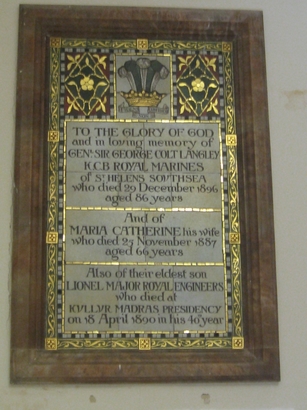 TO THE GLORY OF GOD
and in loving memory of
GENL SIR GEORGE COLT LANGLEY
K.C.B ROYAL MARINES
of ST HELENS SOUTHSEA
who died 29 December 1896
aged 86 years
And of
MARIA CATHERINE his wife
who died 27 November 1887
aged 66 years
Also of their eldest son
LIONEL MAJOR ROYAL ENGINEERS
who died at
KULLUR MADRAS PRESIDENCY
on 18 April 1890 in his 40 year